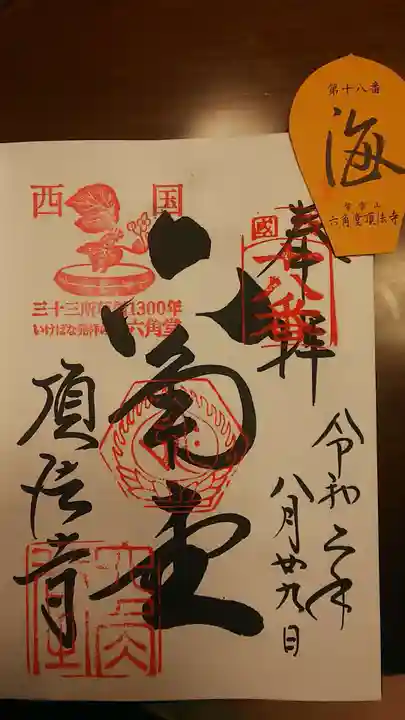 第十八番
海
紫雲山
六角堂頂法寺
奉拝
西国十八番
令和二年
八月廿九日
六角堂
西国
三十三所草創1300年
いけばな発祥の地 六角堂
頂法寺